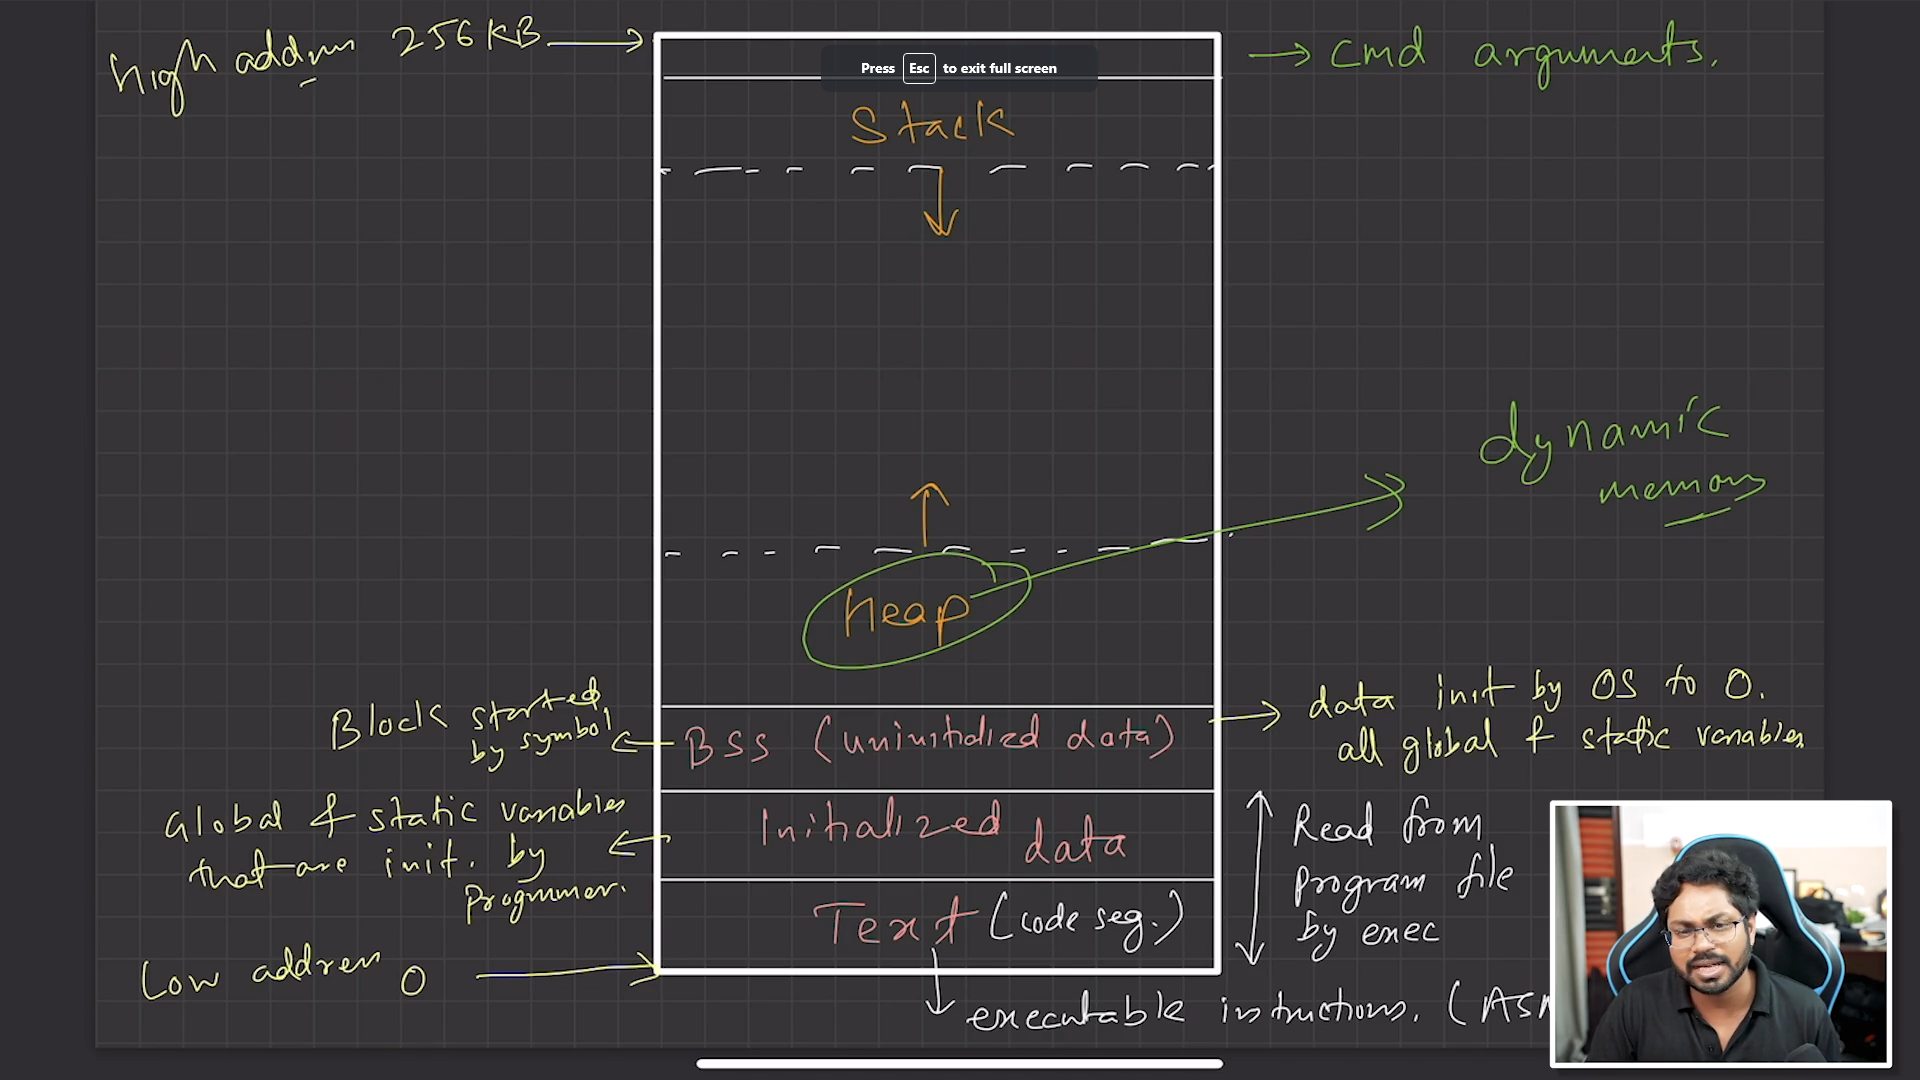 High address 256 KB
cmd arguments.
Press Esc to exit full screen
Stack
dynamic
memory
Heap
Block started
by symbol
BSS (uninitialized data)
data init by OS to 0.
all global & static variables
Global & static variables
that are init. by
Programmer.
Initialized
data
Read from
program file
by exec
Text (code seg.)
Low address 0
executable instructions. (ASM